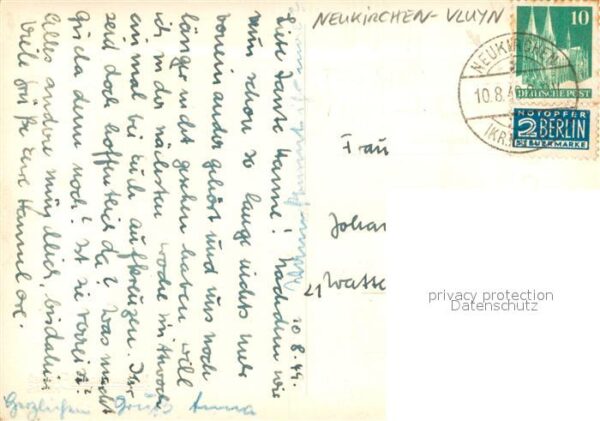 NEUKIRCHEN-VLUYN
10
DEUTSCHE POST
NEUKIRCHEN
10.8.4
(KR.
NOTOPFER
2 BERLIN
STEUERMARKE
10.8.49.
Liebe Tante Hanne! Nachdem wir
nun schon so lange nichts mehr
voneinander gehört und uns noch
länger nicht gesehen haben, will
ich in der nächsten Woche Mittwoch
einmal bei Euch aufkreuzen. Ihr
seid doch hoffentlich da? Was macht
denn noch? Ist sie verreist?
Alles andere mündlich, bis dahin
viele Grüße Eure Hannelore.
Herzlichen Gruß Anna
Frau
Johan
21 Watte
privacy protection
Datenschutz